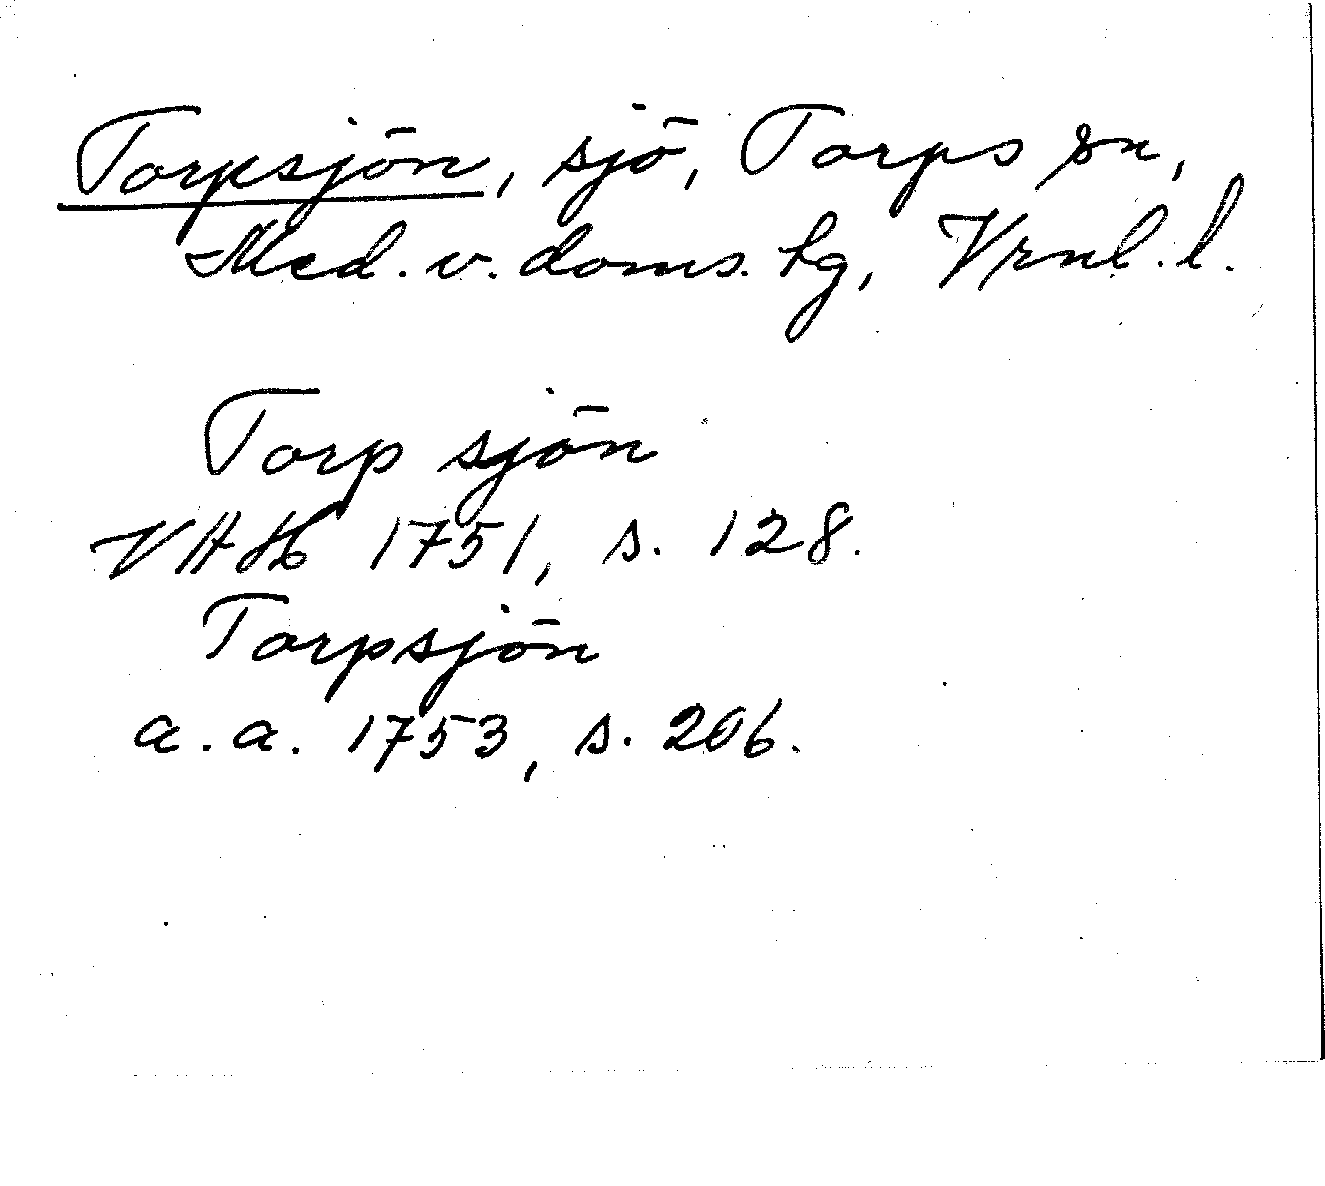 Torpsjön, sjö, Torps sn,
Med. v. doms. hg, Vrnl. l.
Torp sjön
VAH 1751, s. 128.
Torpsjön
a. a. 1753, s. 206.